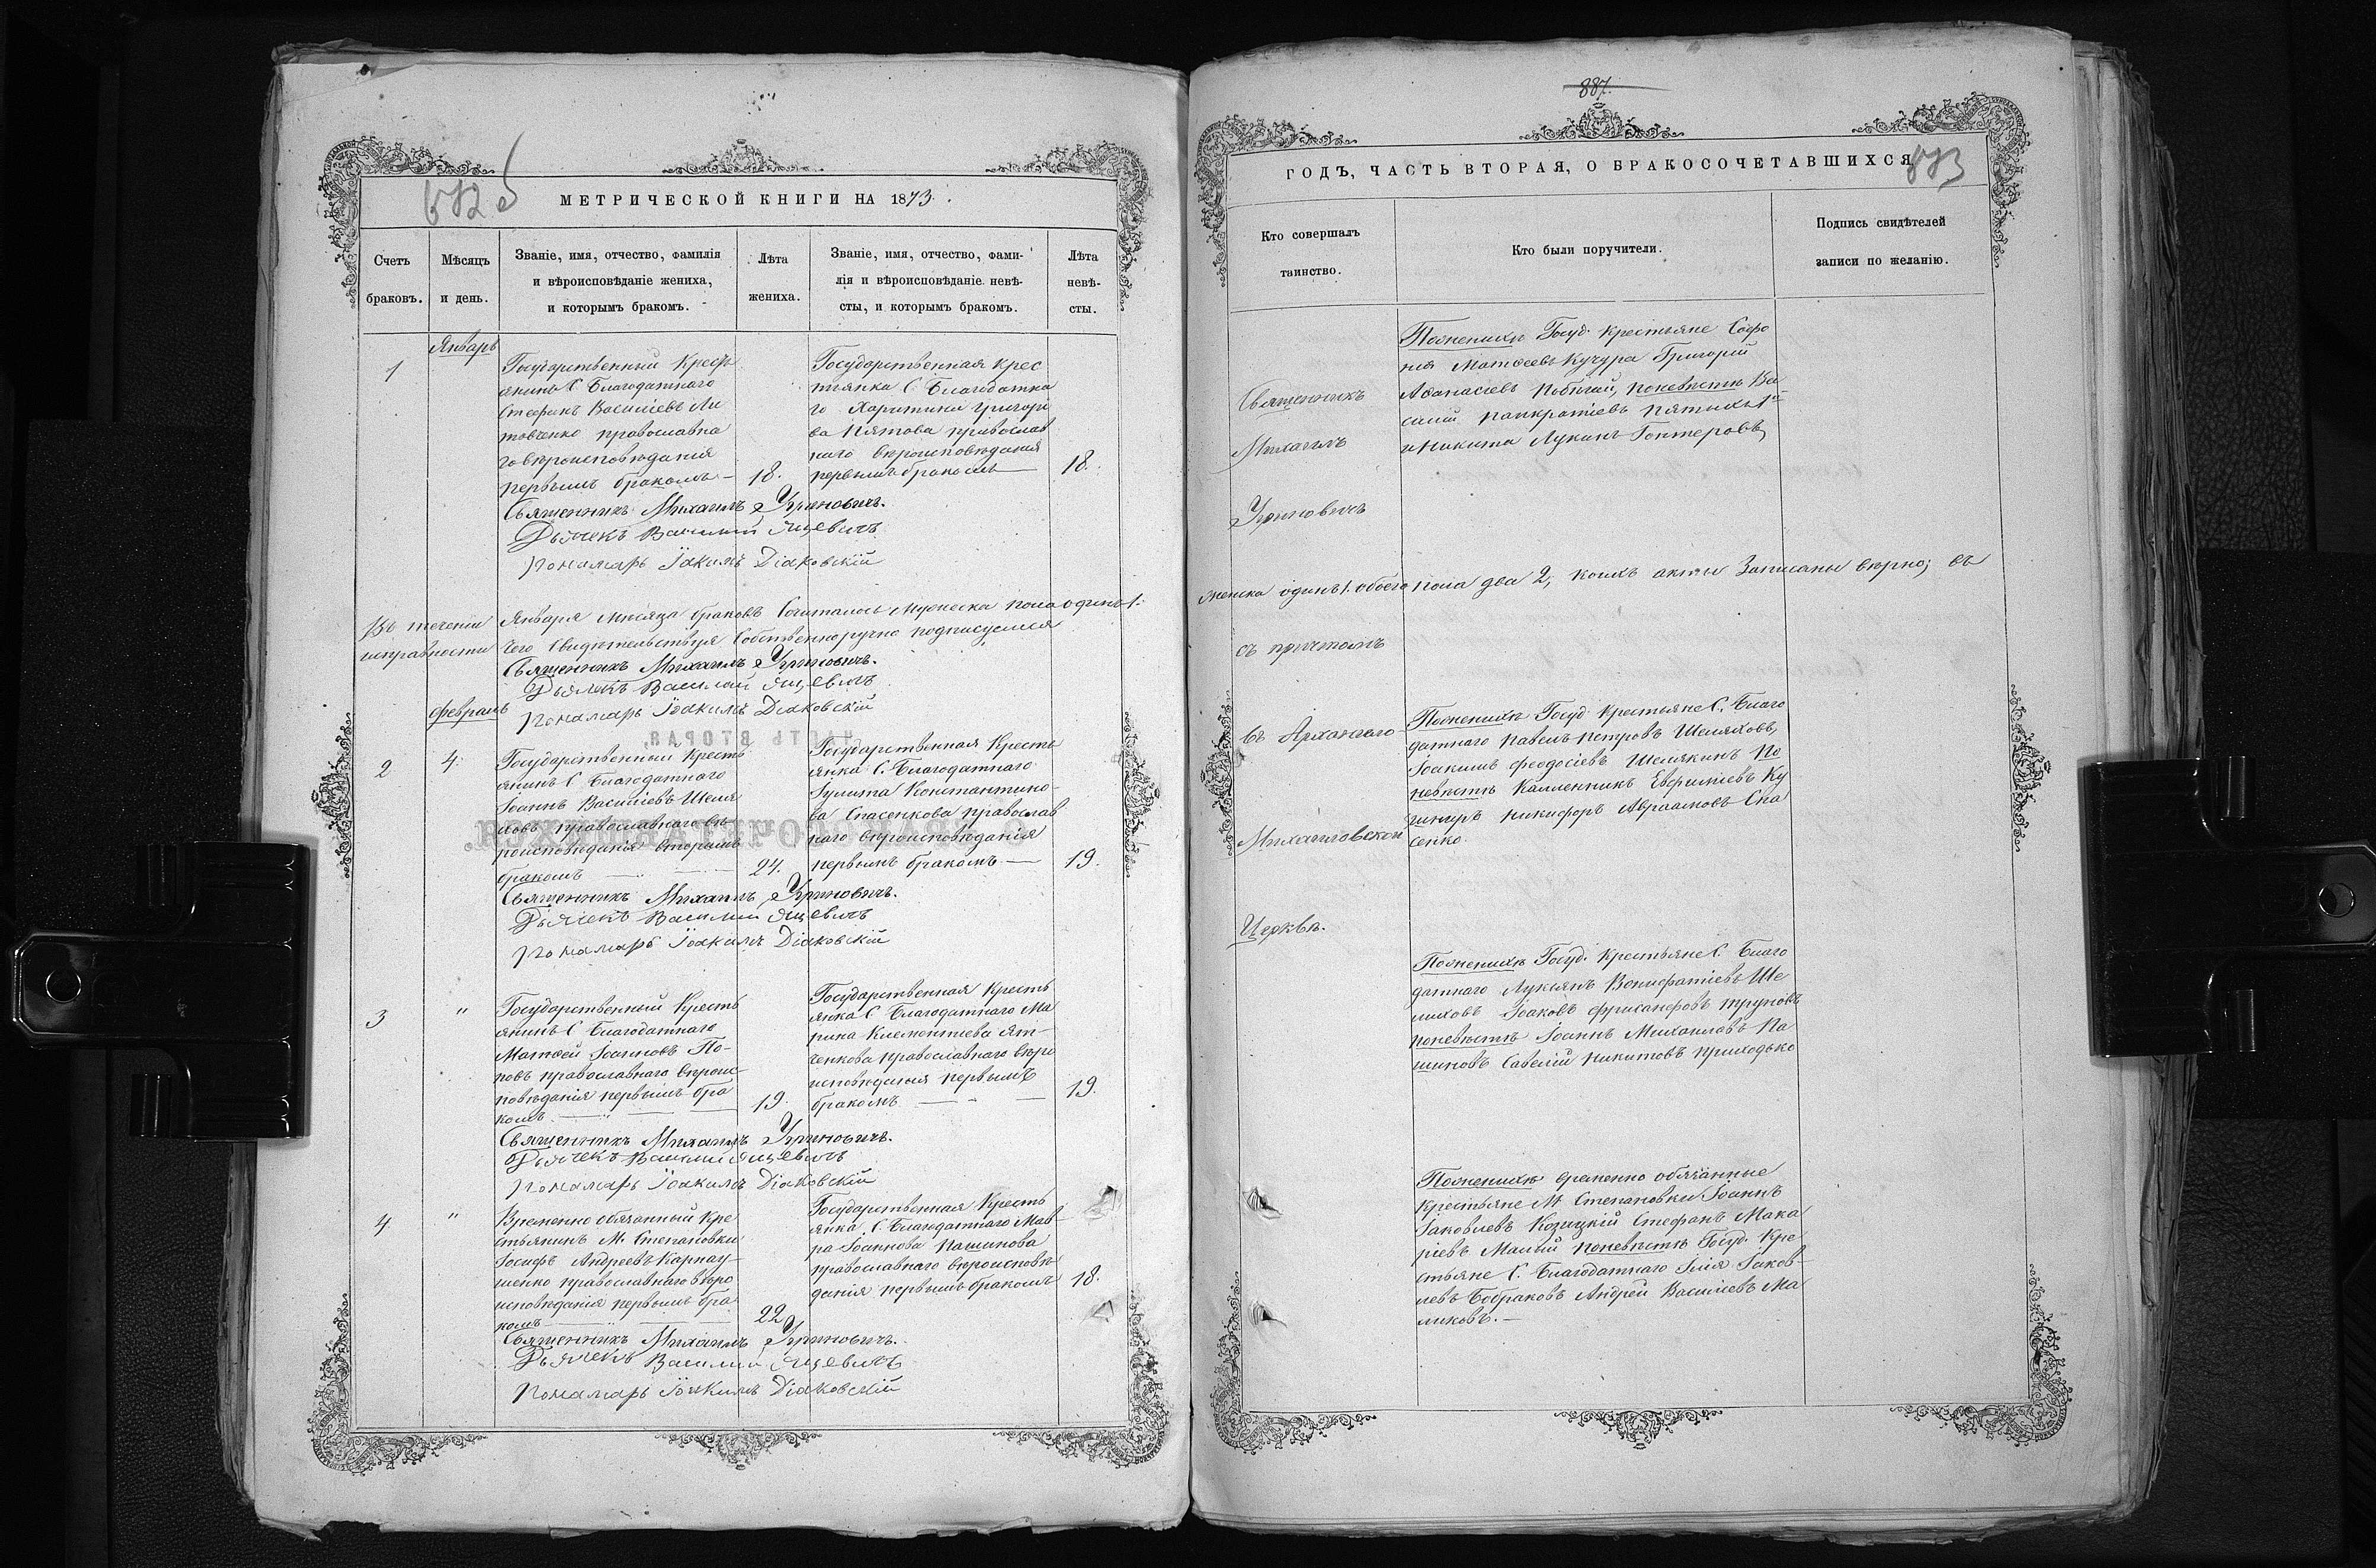 МЕТРИЧЕСКОЙ КНИГИ НА 1873.
Счетъ браковъ.
Мѣсяцъ и день.
Званіе, имя, отчество, фамилія
и вѣроисповѣданіе жениха,
и которымъ бракомъ.
Лѣта
жениха.
Званіе, имя, отчество, фами-
лія и вѣроисповѣданіе невѣ-
сты, и которымъ бракомъ.
Лѣта
невѣ-
сты.
Январь
1
Государственный Кресть
янинъ С Благодатнаго
Стефанъ Василіевъ Ли
товченко православна
го вѣроисповѣданія
первымъ бракомъ
18.
Государственная крес
тьянка С. Благодатна
го Харитина Григорі
ва Пятова православ
наго вѣроисповѣданія
первымъ бракомъ
18.
Священникъ Михаилъ Угриновичъ.
Дьячекъ Василій Яцевичъ
Пономарь Іоакимъ Діаковскій
Въ теченіи Января мѣсяца браковъ Считалось Мужеска пола одинъ 1.
исправности чего Свидѣтельствуя Собственноручно подписуемся
Священникъ Михаилъ Угриновичъ.
Дьячекъ Василій Яцевичъ
Февраль
Пономарь Іоакимъ Діаковскій
2
4.
Государственный Кресть
янинъ С Благодатнаго
Іоаннъ Василіевъ Шеля
ховъ православнаго вѣ
роисповѣданія вторымъ
бракомъ
24.
Государственная Кресть
янка С. Благодатнаго
Іулита Константино
ва Спасенкова православ
наго вѣроисповѣданія
первымъ бракомъ
19.
Священникъ Михаилъ Угриновичъ.
Дьячекъ Василій Яцевичъ
Пономарь Іоакимъ Діаковскій
3
"
Государственный Кресть
янинъ С Благодатнаго
Матѳей Іоанновъ По-
повъ православнаго вѣроис-
повѣданія первымъ бра
комъ
19.
Государственная Кресть
янка С Благодатнаго Ма
рина Климентіева Ят-
ченкова православнаго вѣро
исповѣданія первымъ
бракомъ
19.
Священникъ Михаилъ Угриновичъ.
Дьячекъ Василій Яцевичъ
Пономарь Іоакимъ Діаковскій
4
"
Временно обязанный Кре
стьянинъ М. Степановки
Іосифъ Андреевъ Карнау-
шенко православнаго вѣро
исповѣданія первымъ бра
комъ
22
Государственная Кресть
янка С. Благодатнаго Мав
ра Іоаннова Пашинова
православнаго вѣроисповѣ
данія первымъ бракомъ
18.
Священникъ Михаилъ Угриновичъ.
Дьячекъ Василій Яцевичъ
Пономарь Іоакимъ Діаковскій
887.
ГОДЪ, ЧАСТЬ ВТОРАЯ, О БРАКОСОЧЕТАВШИХСЯ
873
Кто совершалъ
таинство.
Кто были поручители.
Подпись свидѣтелей
записи по желанію.
Священникъ
Михаилъ
Угриновичъ
Пожениху Госуд. крестьяне Софо
ній Матѳеевъ Кучура Григорій
Аѳанасіевъ Побигай, поневѣстѣ Ва
силій Панкратіевъ
и Никита Лукинъ Гонтеровъ
женска одинъ 1. обоего пола два 2, коихъ акты Записаны вѣрно; въ
съ причтомъ
въ Архангело
Михаиловской
Церкви.
Пожениху Госуд Крестьяне С. Благо
датнаго Павелъ Петровъ Шеляховъ,
Іоакимъ Ѳеодосіевъ Шелякинъ По
невѣстѣ Калленникъ Евѳиміевъ Ку
Никифоръ Авраамовъ Спа
сенко.
Пожениху Госуд. Крестьяне С. Благо
датнаго Лукьянъ Вонифатіевъ Ше
лиховъ Іаковъ Хрисанфовъ Труновъ
поневѣстѣ Іоаннъ Михаиловъ Па
шиновъ Савелій Никитовъ Приходько
Пожениху временно обязанные
крестьяне М. Степановки Іоаннъ
Іаковлевъ Козицкій Стефанъ Мака
ріевъ Малый поневѣстѣ Госуд. Кре
стьяне С. Благодатнаго Илія Іаков-
левъ Бобраковъ Андрей Василіевъ Ма
ликовъ.